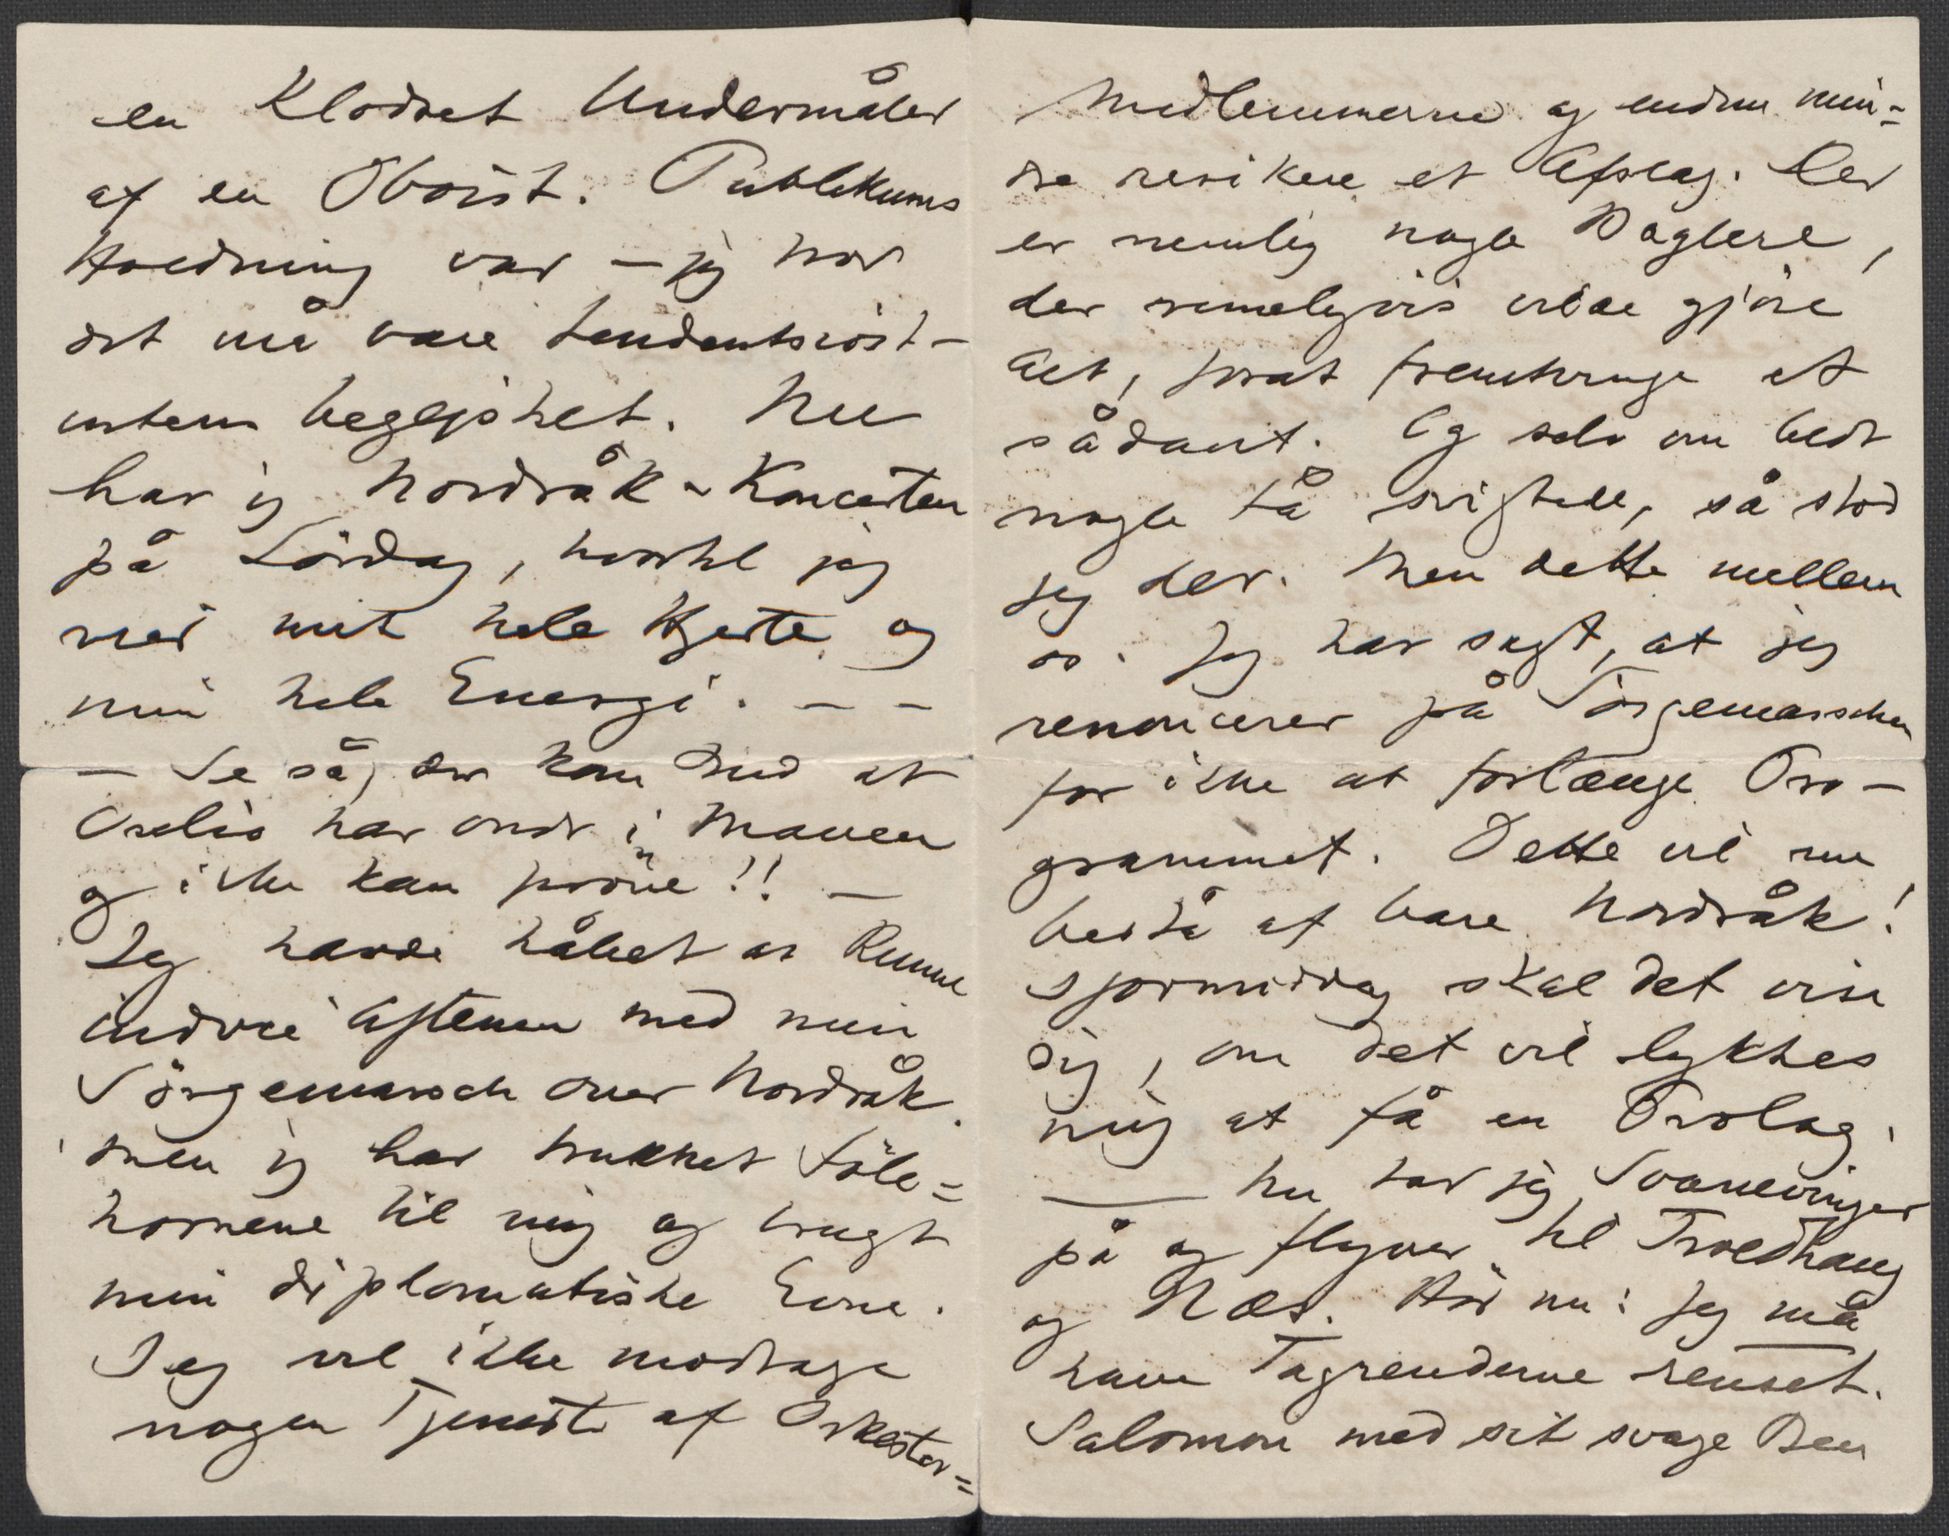 en Klodset Undermåler
af en Oboist. Publikums
Holdning var – jeg tror
det må være tendentsiöst –
uden begejstret. Nu
har jeg Nordråk-Koncerten
på Lördag, hvortil jeg
vier mit hele Hjerte og
min hele Energi. – –
– Se så, der kom Bud at
Orelio har ondt i Maven
og ikke kan pröve!! –
Jeg havde håbet at kunne
indvie Aftenen med min
Sörgemarsch over Nordråk.
men jeg har trukket Föle=
hornene til mig og brugt
min diplomatiske Evne.
Jeg vil ikke modtage
nogen Tjeneste af Orkester=
Medlemmerne og endnu min=
dre risikere et Afslag. Der
er nemlig nogle Böglere,
der rimeligvis vilde gjöre
Alt, forat fremtvinge et
sådant. Og selv om blot
nogle få svigtede, så stod
jeg der. Men dette mellem
os. Jeg har sagt, at jeg
renoncerer på Sörgemarschen
for ikke at forlænge Pro–
grammet. Dette vil nu
bestå af bare Nordråk!
I formiddag skal det vise
sig, om det vil lykkes
mig at få en Prolog.
— Nu tar jeg Svanevinger
på og flyver til Troldhaug
og Næs. Hör nu: Jeg må
have Tagrenderne renset.
Salomon med sit svage Ben